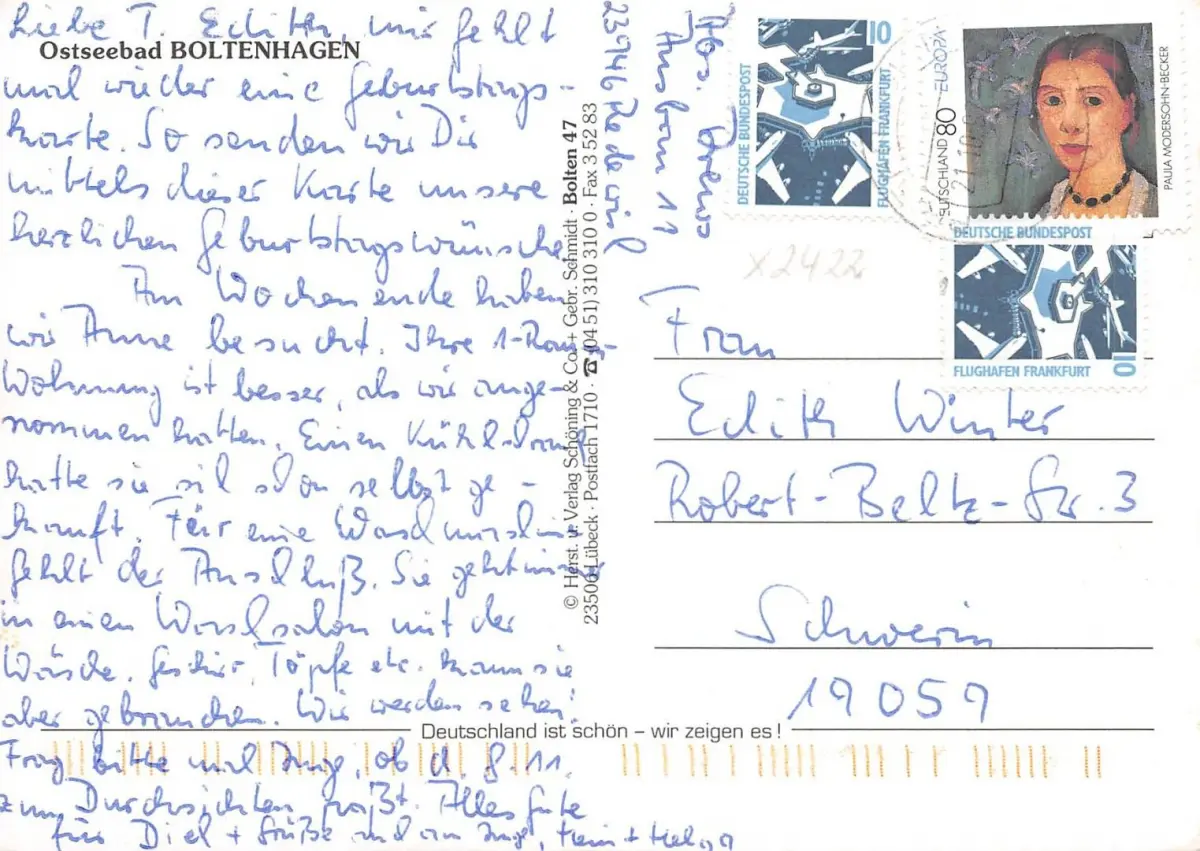 Ostseebad BOLTENHAGEN
Liebe T. Edith, mir fehlt
mal wieder eine Geburtstags-
karte. So senden wir Dir
mittels dieser Karte unsere
herzlichen Geburtstagswünsche
Am Wochenende haben
wir Anne besucht. Ihre 1-Raum-
Wohnung ist besser, als wir ange-
nommen hatten. Einen Kühlschrank
hatte sie sich schon selbst ge-
kauft. Für eine Waschmaschine
fehlt der Anschluß. Sie geht immer
in einen Waschsalon mit der
Wäsche. Geschirr, Töpfe etc. kann sie
aber gebrauchen. Wir werden sehen!
Frag bitte mal Inge, ob d. 8.11.
zum Durchsichten paßt. Alles Gute
für Dich + Grüße auch an Inge, Hein + Helga
© Herst. u. Verlag Schöning & Co. + Gebr. Schmidt · Bolten 47
23506 Lübeck · Postfach 1710 · ☎ (04 51) 310 310 0 · Fax 3 52 83
Abs.
11
23946
DEUTSCHE BUNDESPOST
10
FLUGHAFEN FRANKFURT
DEUTSCHLAND 80 EUROPA
PAULA MODERSOHN-BECKER
DEUTSCHE BUNDESPOST
FLUGHAFEN FRANKFURT
10
x2422
Frau
Edith Winter
Robert-Beltz-Str. 3
Schwerin
19059
Deutschland ist schön – wir zeigen es!